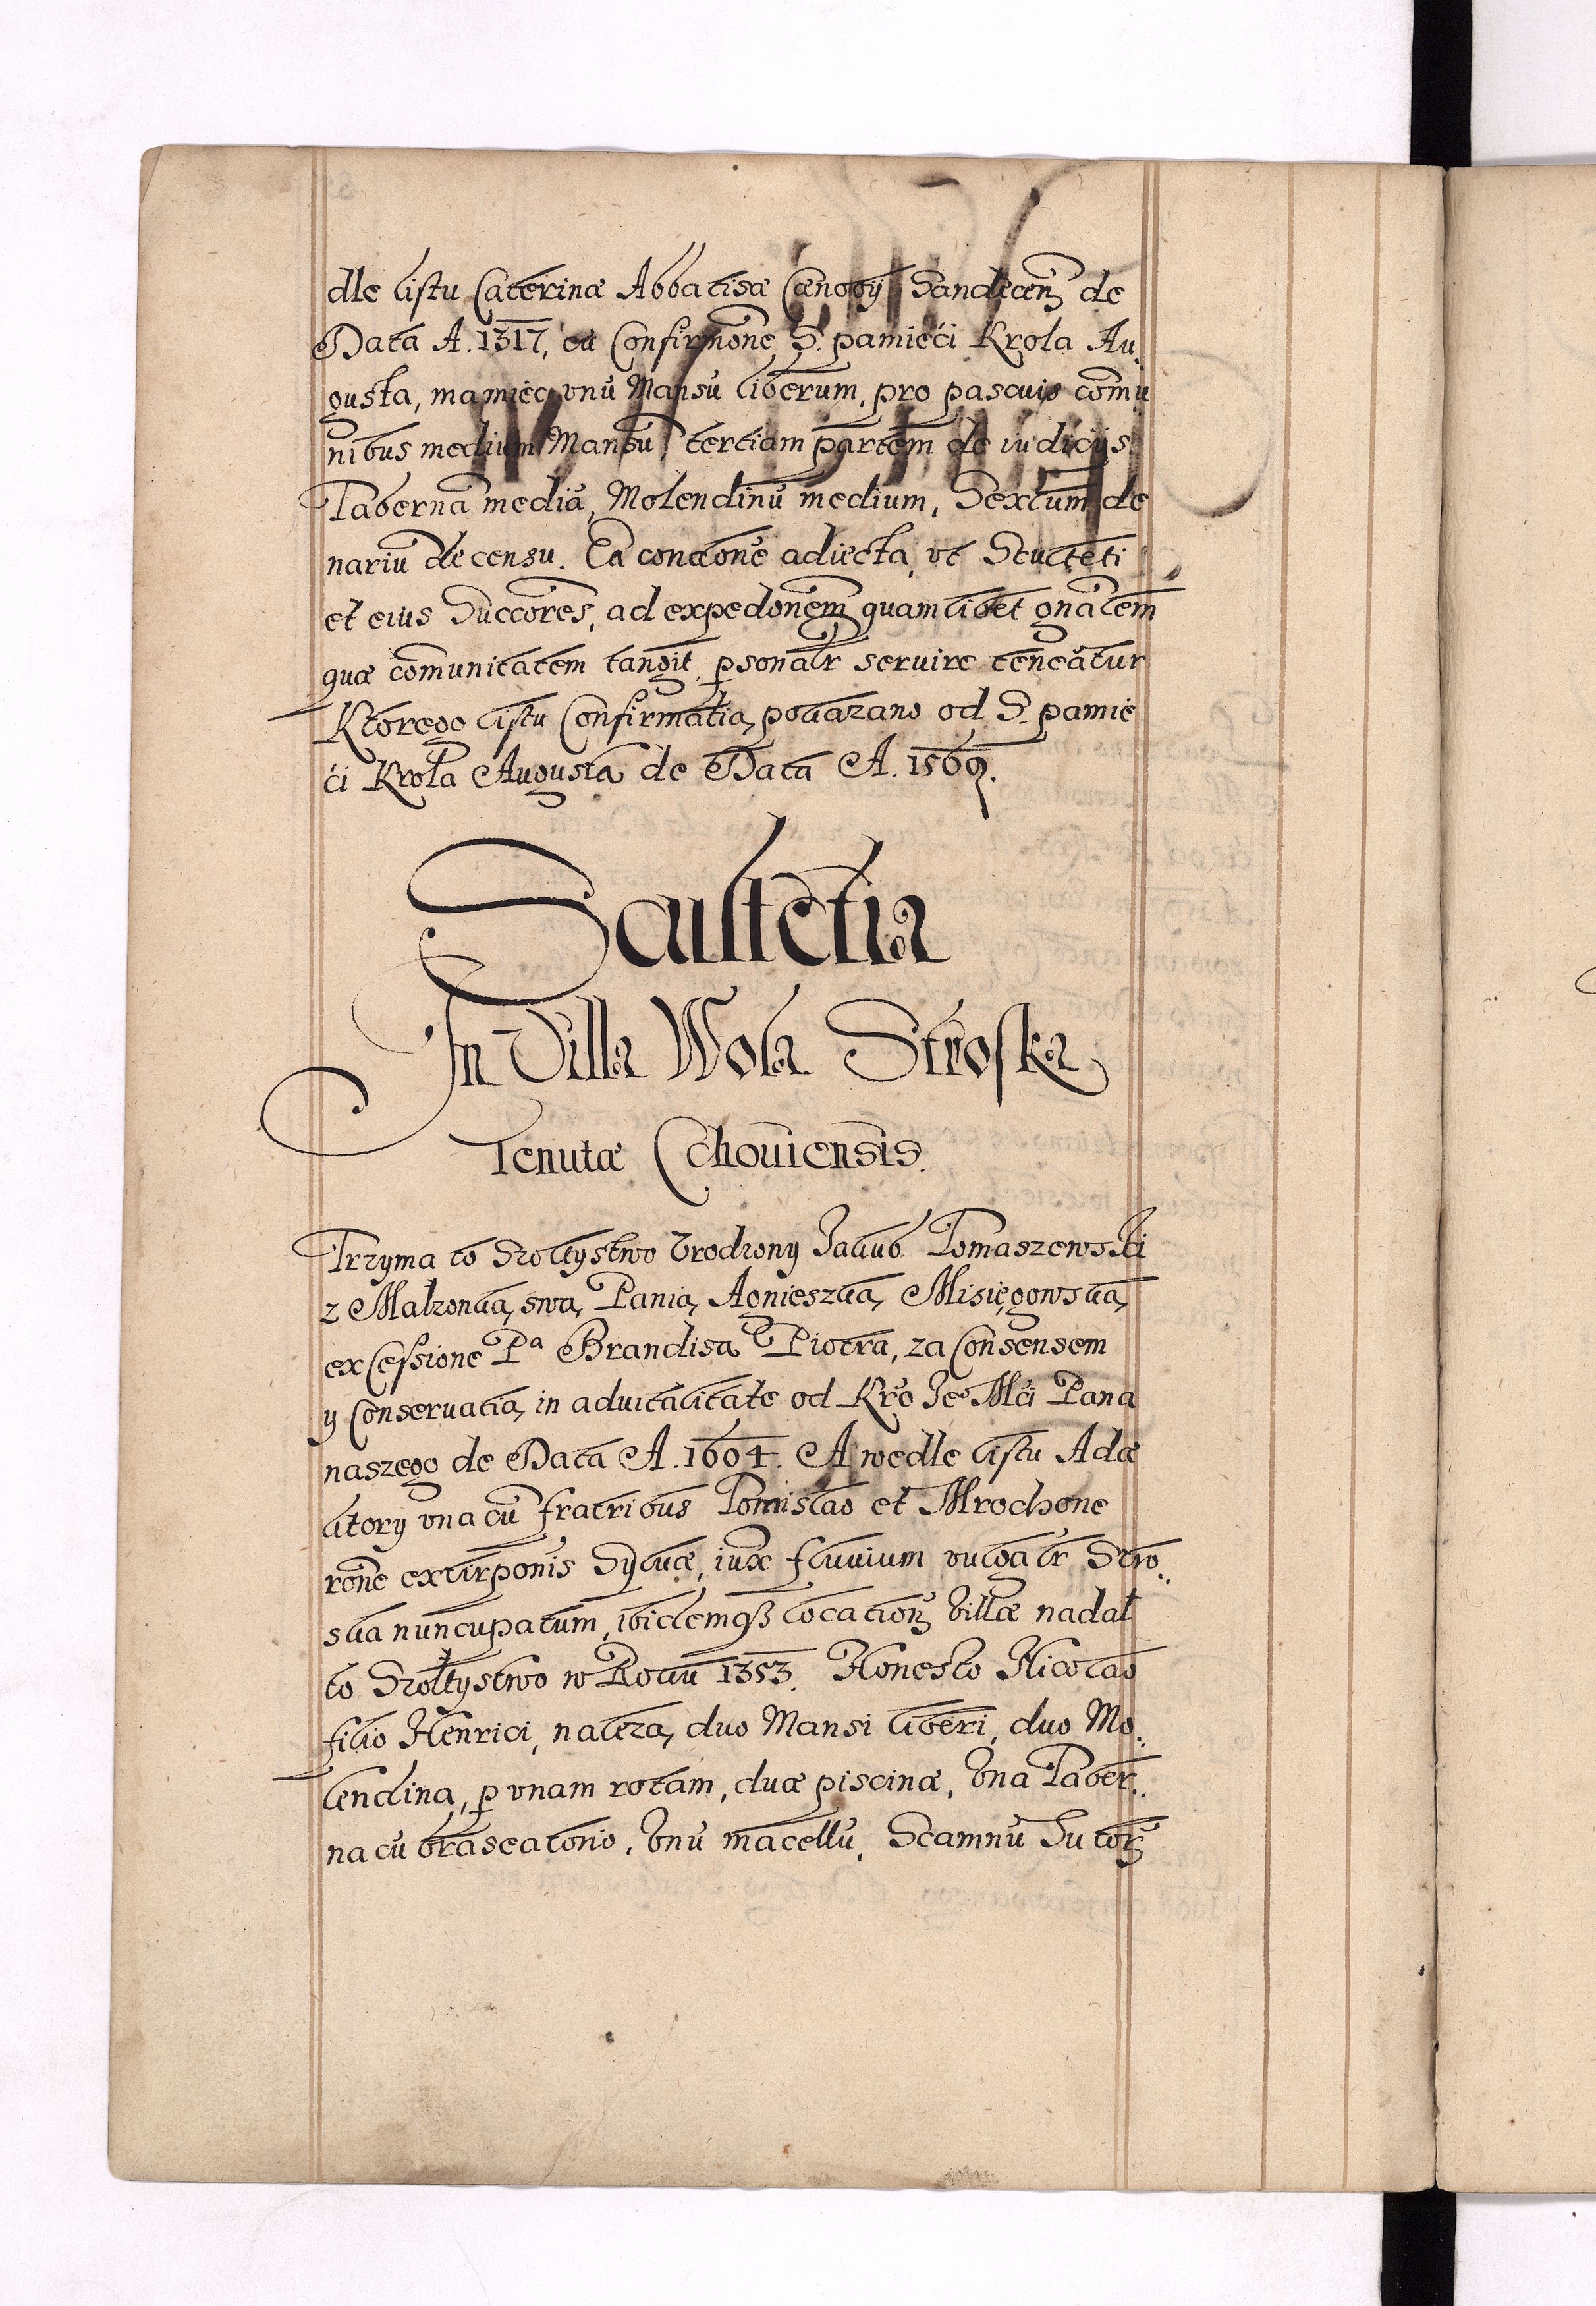 dle listu Caterinæ Abbatisæ Cænobÿ Sandecen̄ de
Data A. 1317, et Confirmōne S. pamięći Krola Au.
gusta, ma mieć vnū Mansū liberum, pro pascuis com̄u
nibus medium Mansū, tertiam partem de iudicÿs
Tabernā mediā, Molendinū medium, Sextum de
nariū de censu. Ea condōne adiecta, vt Sculteti
et eius Succōres, ad expedōnem quamlibet gnālem
quæ com̄unitatem tangit, psonalr seruire teneātur
Ktorego listu Confirmatią pokazano od S. pamię
ći Krola Augusta de Data A. 1569.
Scultetia
In Villa Wola Stroska
Tenutæ Cchouiensis.
Trzyma to Szołtystwo Vrodzony Jakub Tomaszewski
z Małzonką swą Panią Agnieszką Misięgowską
ex Cessione Pa Brandisa Piotra, za Consensem
y Conseruatią in aduitalitate od Kro Je° Mći Pana
naszego de Data A. 1604. A wedle listu Adæ
ktory vna cū fratribus Tomislao et Mrochone
rōne extirpōnis Syluæ, iuxᵃ fluuium vulgalr Stro..
ska nuncupatum, ibidemqȝ locationȝ Villæ nadał
to Szołtystwo w Roku 1353. Honesto Nicolao
filio Henrici, nalezą duo Mansi liberi, duo Mo..
lendina, p vnam rotam, duæ piscinæ, Vna Taber..
na cū braseatorio, Vnū macellū, Scamnū Sutorȝ